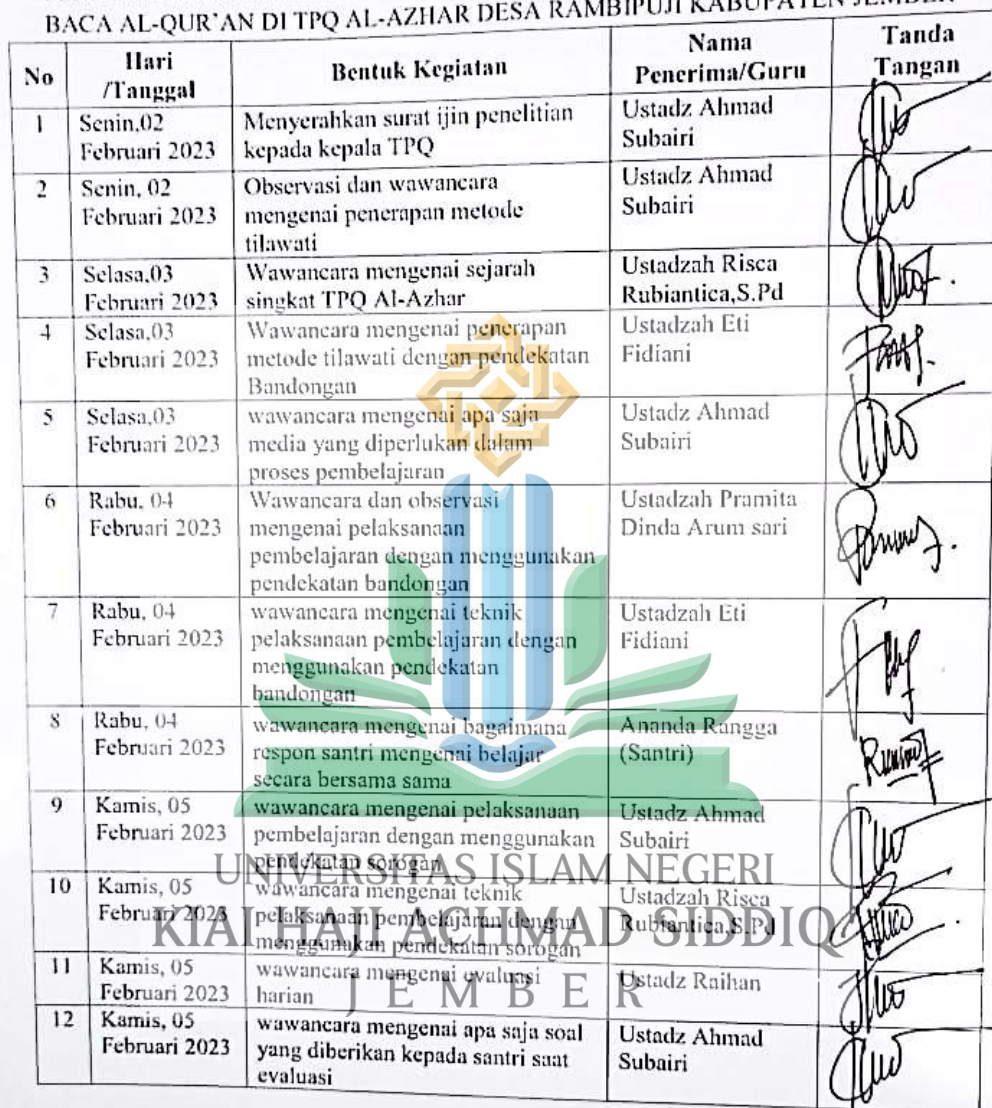 BACA AL-QUR'AN DI TPQ AL-AZHAR DESA RAMBIPUJI KABUPATEN JEMBER
No
Hari
/Tanggal
Bentuk Kegiatan
Nama
Penerima/Guru
Tanda
Tangan
1
Senin,02
Februari 2023
Menyerahkan surat ijin penelitian
kepada kepala TPQ
Ustadz Ahmad
Subairi
2
Senin, 02
Februari 2023
Observasi dan wawancara
mengenai penerapan metode
tilawati
Ustadz Ahmad
Subairi
3
Selasa,03
Februari 2023
Wawancara mengenai sejarah
singkat TPQ Al-Azhar
Ustadzah Risca
Rubiantica,S.Pd
4
Selasa,03
Februari 2023
Wawancara mengenai penerapan
metode tilawati dengan pendekatan
Bandongan
Ustadzah Eti
Fidiani
5
Selasa,03
Februari 2023
wawancara mengenai apa saja
media yang diperlukan dalam
proses pembelajaran
Ustadz Ahmad
Subairi
6
Rabu, 04
Februari 2023
Wawancara dan observasi
mengenai pelaksanaan
pembelajaran dengan menggunakan
pendekatan bandongan
Ustadzah Pramita
Dinda Arum sari
7
Rabu, 04
Februari 2023
wawancara mengenai teknik
pelaksanaan pembelajaran dengan
menggunakan pendekatan
bandongan
Ustadzah Eti
Fidiani
8
Rabu, 04
Februari 2023
wawancara mengenai bagaimana
respon santri mengenai belajar
secara bersama sama
Ananda Rangga
(Santri)
9
Kamis, 05
Februari 2023
wawancara mengenai pelaksanaan
pembelajaran dengan menggunakan
pendekatan sorogan
Ustadz Ahmad
Subairi
10
Kamis, 05
Februari 2023
wawancara mengenai teknik
pelaksanaan pembelajaran dengan
menggunakan pendekatan sorogan
Ustadzah Risca
Rubiantica,S.Pd
11
Kamis, 05
Februari 2023
wawancara mengenai evaluasi
harian
Ustadz Raihan
12
Kamis, 05
Februari 2023
wawancara mengenai apa saja soal
yang diberikan kepada santri saat
evaluasi
Ustadz Ahmad
Subairi
UNIVERSITAS ISLAM NEGERI
KIAI HAJI ACHMAD SIDDIQ
JEMBER